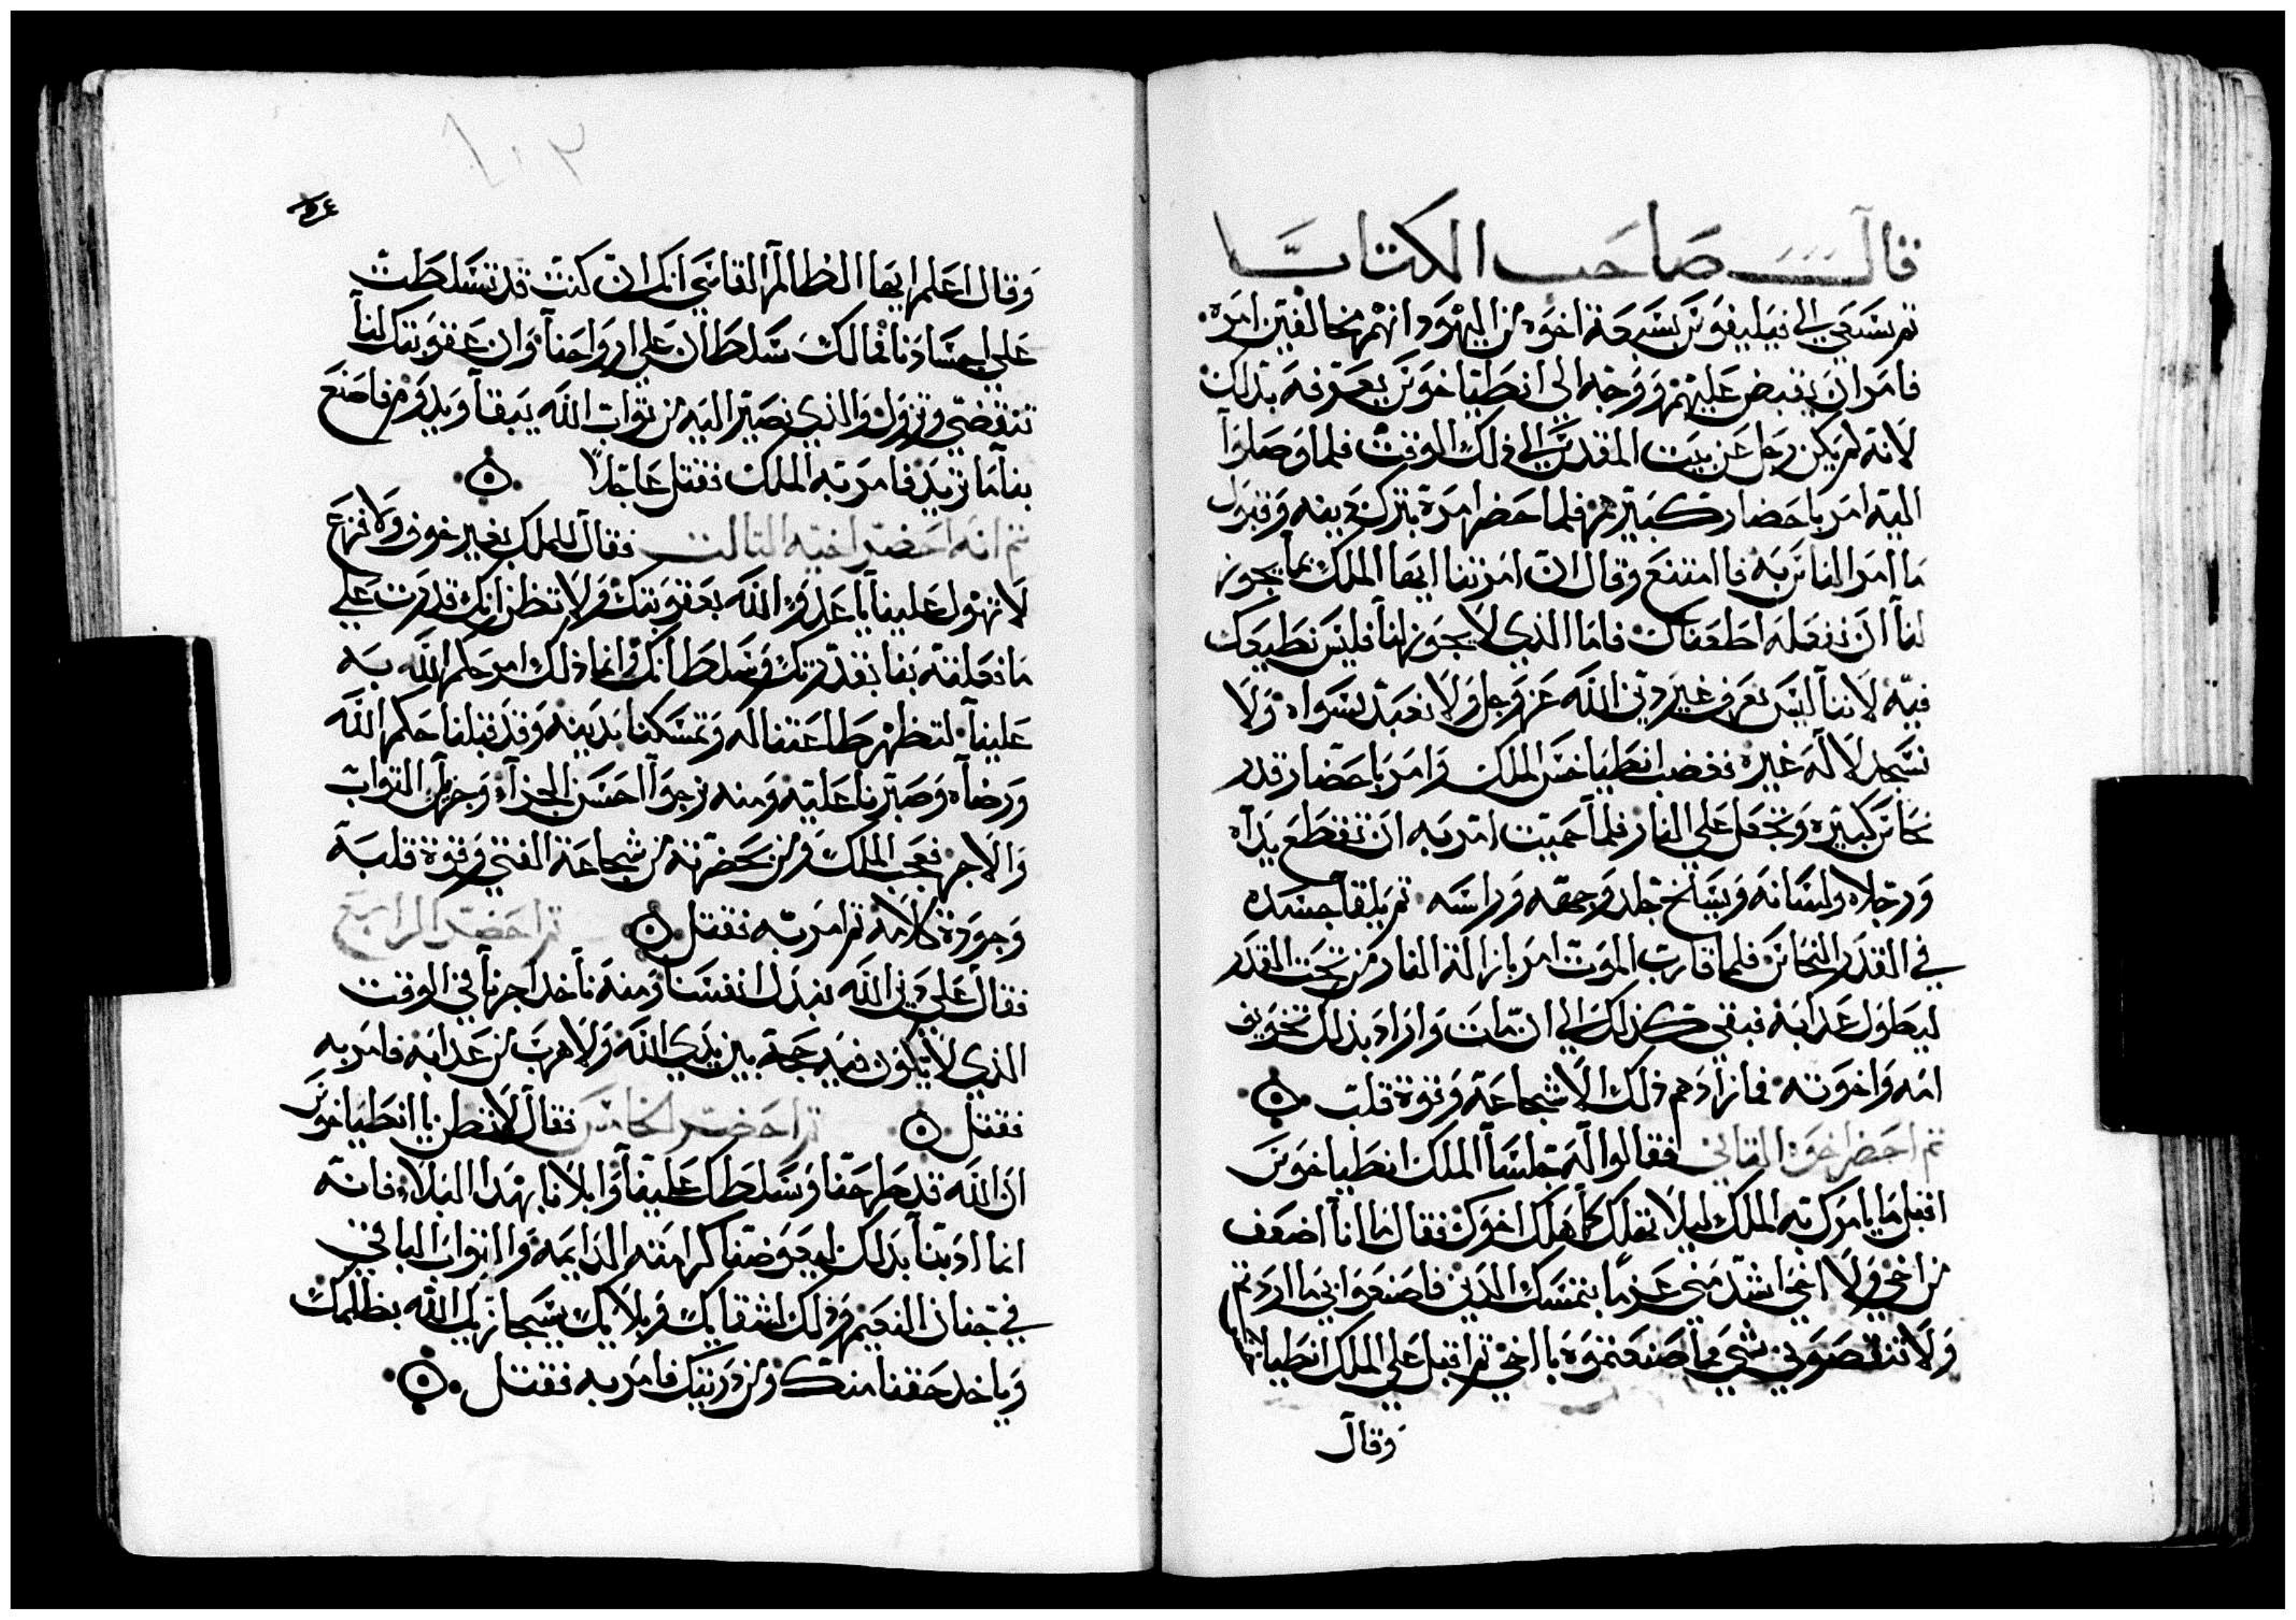 قال صاحب الكتاب
ثم سعي الي فيليفوس بسبعة اخوه من اليهود انهم مخالفين امره
فامر ان يقبض عليهم ووجه الي انطياخوس يعرفه بذلك
لانه لم يكن رحل عن بيت المقدس الي ذلك الوقت فلما وصلوا
اليه امر باحضار كبيرهم فلما حضر امره بترك دينه وقبول
ما امر الناس به فاامتنع وقال ان امرتنا ايها الملك بما يجوز
لنا ان نفعله اطعناك فاما الذي لا يجوز لنا فليس نطيعك
فيه لاننا ليس نعرف غير دين الله عز وجل ولا نعبد سواه ولا
نسجد لاله غيره فغضب انطياخس الملك وامر باحضار قدر
نحاس كبيره وتجعل علي النار فلما حميت امر به ان تقطع يداه
ورجلاه ولسانه ويسلخ جلد وجهه وراسه ثم يلقا جسده
في القدر النحاس فلما قارب الموت امر بازالة النار من تحت القدر
ليطول عذابه فبقي كذلك الي ان مات واراد بذلك تخويف
امه واخوته فما زادهم ذلك الا شجاعة وقوة قلب
ثم احضر اخوه الثاني فقالوا له جلسا الملك انطياخوس
افعل ما يامرك به الملك ليلا تهلك كما هلك اخوك فقال ما انا اضعف
من اخي ولا اخي اشد مني عزما بتمسك الدين فاصنعوا بي ما اردتم
ولا تنقصوني شي مما صنعتموه بااخي ثم اقبل علي الملك انطياخس
وقال
١٠٣
وقال اعلم ايها الظالم القاسي انك ان كنت قد تسلطت
علي اجسادنا فما لك سلطان علي ارواحنا وان عقوبتك لنا
تنقضي وتزول والذي نصير اليه من ثواب الله يبقا ويدوم فاصنع
بنا ما تريد فامر به الملك فقتل عاجلا
ثم انه احضر اخيه الثالث فقال للملك بغير خوف ولا فزع
لا تهول علينا يا عدو الله بعقوبتك ولا تظن انك قدرت علي
ما فعلته بنا بقدرتك وسلطانك وانما ذلك امر حكم الله به
علينا لتظهر طاعتنا له وتمسكنا بدينه وقد قبلنا حكم الله
ورضاه وصبرنا عليه ومنه نرجوا احسن الجزاء وجزيل الثواب
والاجر فعجب الملك ومن بحضرته من شجاعة الفتي وقوة قلبه
وجودة كلامه ثم امر به فقتل ثم احضر الرابع
فقال علي دين الله نبذل انفسنا ومنه ناخد اجرنا في الوقت
الذي لا يكون فيه حجة بين يدي الله ولا هرب من عذابه فامر به
فقتل ثم احضر الخامس فقال لا تظن يا انطياخوس
ان الله قد طرحنا وسلطك علينا وابلانا بهدا البلاء فانه
انما ادبنا بدلك ليعوضنا كرامته الدايمه والثواب الباقي
في جنان النعيم وذلك لشقايك وبلايك يسيجازيك الله بظلمك
وياخد حقنا منك ومن دريتك فامر به فقتل